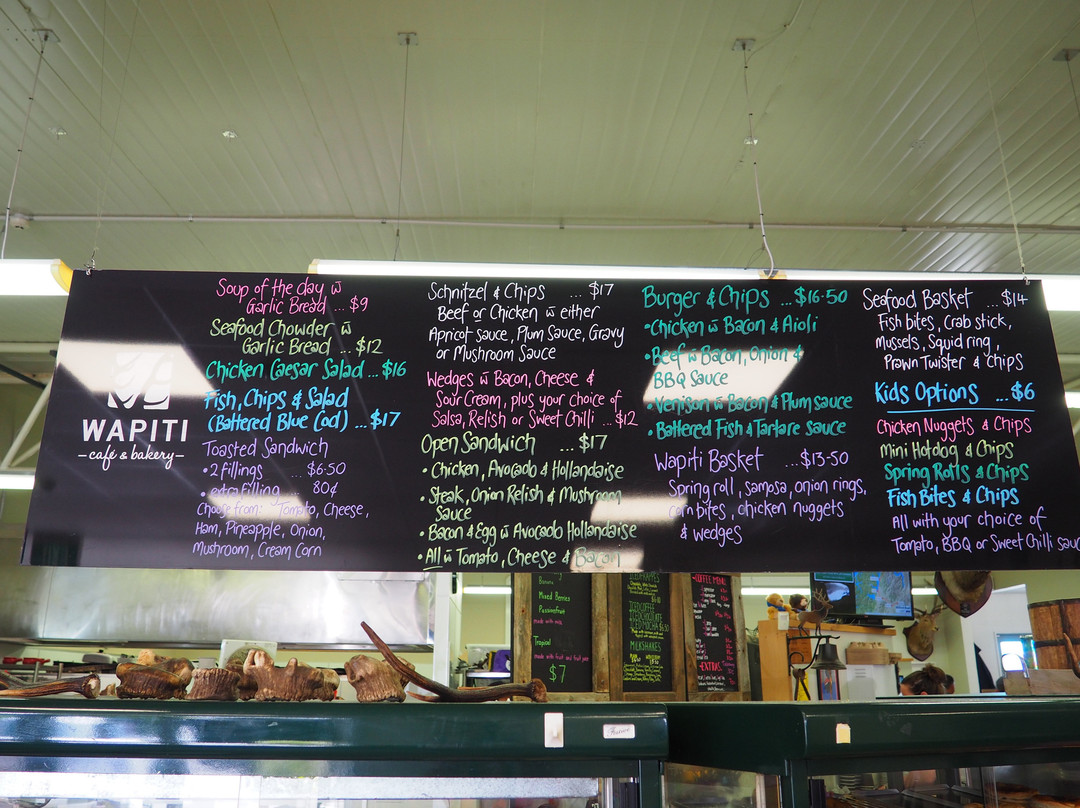 WAPITI
café & bakery
Soup of the day w̄
Garlic Bread ... $9
Seafood Chowder w̄
Garlic Bread ... $12
Chicken Caesar Salad ... $16
Fish, Chips & Salad
(Battered Blue Cod) ... $17
Toasted Sandwich
• 2 fillings ... $6-50
• extra filling ... 80¢
Choose from: Tomato, Cheese,
Ham, Pineapple, Onion,
Mushroom, Cream Corn
Schnitzel & Chips ... $17
Beef or Chicken w̄ either
Apricot sauce, Plum Sauce, Gravy
or Mushroom Sauce
Wedges w̄ Bacon, Cheese &
Sour Cream, plus your choice of
Salsa, Relish or Sweet Chilli ... $12
Open Sandwich ... $17
• Chicken, Avocado & Hollandaise
• Steak, Onion Relish & Mushroom
Sauce
• Bacon & Egg w̄ Avocado Hollandaise
• All w̄ Tomato, Cheese & Bacon
Burger & Chips ... $16-50
• Chicken w̄ Bacon & Aioli
• Beef w̄ Bacon, Onion &
BBQ Sauce
• Venison w̄ Bacon & Plum sauce
• Battered Fish & Tartare sauce
Wapiti Basket ... $13-50
Spring roll, samosa, onion rings,
corn bites, chicken nuggets
& wedges
Seafood Basket ... $14
Fish bites, Crab stick,
Mussels, Squid ring,
Prawn Twister & Chips
Kids Options ... $6
Chicken Nuggets & Chips
Mini Hotdog & Chips
Spring Rolls & Chips
Fish Bites & Chips
All with your choice of
Tomato, BBQ or Sweet Chilli sauc
Banana
Mixed Berries
Passionfruit
made with milk
Tropical
made with fruit and fruit juice
$7
ICED COFFEE
ICED CHOCOLATE
ICED MOCHA
MILKSHAKES
COFFEE MENU
EXTRAS